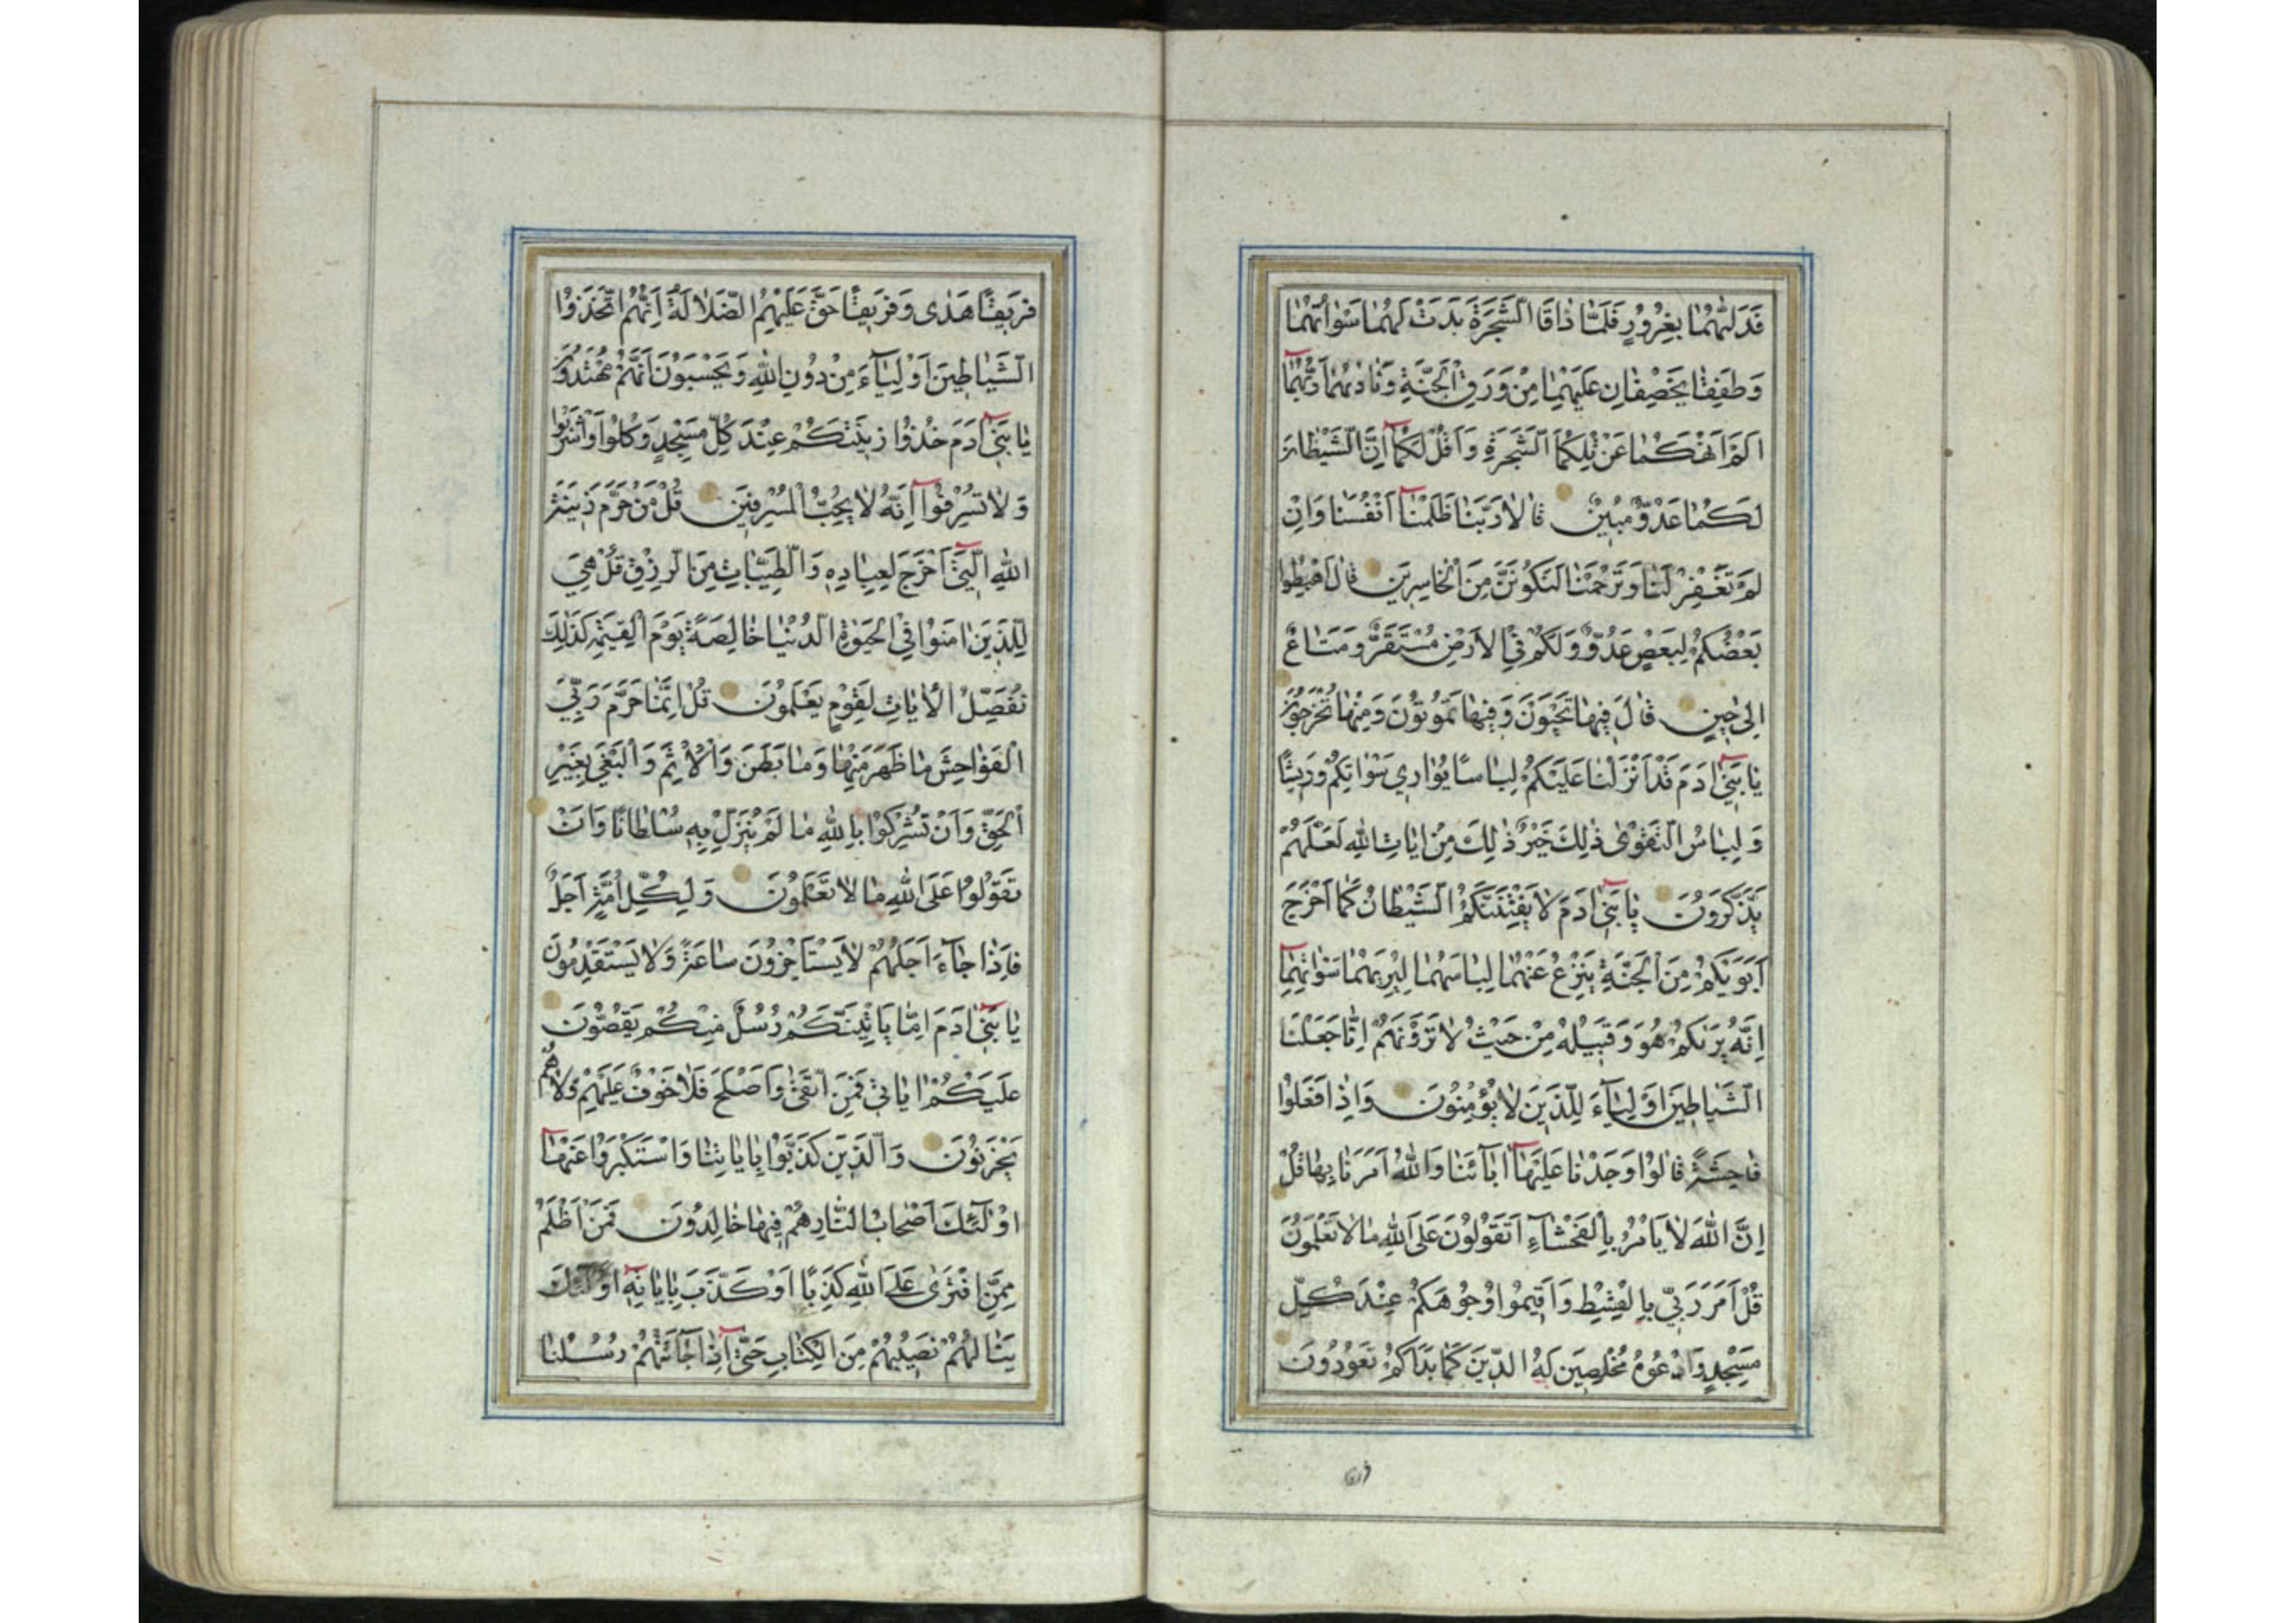 فَدَلّٰيهُمٰا بِغُرُورٍ فَلَمّٰا ذٰاقَا الشَّجَرَةَ بَدَتْ لَهُمٰا سَوْاٰتُهُمٰا
وَطَفِقٰا يَخْصِفٰانِ عَلَيْهِمٰا مِنْ وَرَقِ الْجَنَّةِ وَنٰادٰيهُمٰا رَبُّهُمٰا
اَلَمْ اَنْهَكُمٰا عَنْ تِلْكُمَا الشَّجَرَةِ وَاَقُلْ لَكُمٰا اِنَّ الشَّيْطٰانَ
لَكُمٰا عَدُوٌّ مُبِينٌ قٰالاٰ رَبَّنٰا ظَلَمْنٰا اَنْفُسَنٰا وَاِنْ
لَمْ تَغْفِرْ لَنٰا وَتَرْحَمْنٰا لَنَكُونَنَّ مِنَ الْخٰاسِرِينَ قٰالَ اهْبِطُوا
بَعْضُكُمْ لِبَعْضٍ عَدُوٌّ وَلَكُمْ فِي الْاَرْضِ مُسْتَقَرٌّ وَمَتٰاعٌ
اِلىٰ حِينٍ قٰالَ فِيهٰا تَحْيَوْنَ وَفِيهٰا تَمُوتُونَ وَمِنْهٰا تُخْرَجُونَ
يٰا بَنِي اٰدَمَ قَدْ اَنْزَلْنٰا عَلَيْكُمْ لِبٰاسًا يُوٰارِي سَوْاٰتِكُمْ وَرِيشًا
وَلِبٰاسُ التَّقْوٰى ذٰلِكَ خَيْرٌ ذٰلِكَ مِنْ اٰيٰاتِ اللهِ لَعَلَّهُمْ
يَذَّكَّرُونَ يٰا بَنِي اٰدَمَ لاٰ يَفْتِنَنَّكُمُ الشَّيْطٰانُ كَمٰا اَخْرَجَ
اَبَوَيْكُمْ مِنَ الْجَنَّةِ يَنْزِعُ عَنْهُمٰا لِبٰاسَهُمٰا لِيُرِيَهُمٰا سَوْاٰتِهِمٰا
اِنَّهُ يَرٰيكُمْ هُوَ وَقَبِيلُهُ مِنْ حَيْثُ لاٰ تَرَوْنَهُمْ اِنّٰا جَعَلْنَا
الشَّيٰاطِينَ اَوْلِيٰاءَ لِلَّذِينَ لاٰ يُؤْمِنُونَ وَاِذٰا فَعَلُوا
فٰاحِشَةً قٰالُوا وَجَدْنٰا عَلَيْهٰا اٰبٰائَنٰا وَاللهُ اَمَرَنٰا بِهٰا قُلْ
اِنَّ اللهَ لاٰ يَاْمُرُ بِالْفَحْشٰاءِ اَتَقُولُونَ عَلَى اللهِ مٰا لاٰ تَعْلَمُونَ
قُلْ اَمَرَ رَبِّي بِالْقِسْطِ وَاَقِيمُوا وُجُوهَكُمْ عِنْدَ كُلِّ
مَسْجِدٍ وَادْعُوهُ مُخْلِصِينَ لَهُ الدِّينَ كَمٰا بَدَاَكُمْ تَعُودُونَ
فَرِيقًا هَدٰى وَفَرِيقًا حَقَّ عَلَيْهِمُ الضَّلاٰلَةُ اِنَّهُمُ اتَّخَذُوا
الشَّيٰاطِينَ اَوْلِيٰاءَ مِنْ دُونِ اللهِ وَيَحْسَبُونَ اَنَّهُمْ مُهْتَدُونَ
يٰا بَنِي اٰدَمَ خُذُوا زِينَتَكُمْ عِنْدَ كُلِّ مَسْجِدٍ وَكُلُوا وَاشْرَبُوا
وَلاٰ تُسْرِفُوا اِنَّهُ لاٰ يُحِبُّ الْمُسْرِفِينَ قُلْ مَنْ حَرَّمَ زِينَةَ
اللهِ الَّتِي اَخْرَجَ لِعِبٰادِهِ وَالطَّيِّبٰاتِ مِنَ الرِّزْقِ قُلْ هِيَ
لِلَّذِينَ اٰمَنُوا فِي الْحَيٰوةِ الدُّنْيٰا خٰالِصَةً يَوْمَ الْقِيٰمَةِ كَذٰلِكَ
نُفَصِّلُ الْاٰيٰاتِ لِقَوْمٍ يَعْلَمُونَ قُلْ اِنَّمٰا حَرَّمَ رَبِّيَ
الْفَوٰاحِشَ مٰا ظَهَرَ مِنْهٰا وَمٰا بَطَنَ وَالْاِثْمَ وَالْبَغْيَ بِغَيْرِ
الْحَقِّ وَاَنْ تُشْرِكُوا بِاللهِ مٰا لَمْ يُنَزِّلْ بِهِ سُلْطٰانًا وَاَنْ
تَقُولُوا عَلَى اللهِ مٰا لاٰ تَعْلَمُونَ وَلِكُلِّ اُمَّةٍ اَجَلٌ
فَاِذٰا جٰاءَ اَجَلُهُمْ لاٰ يَسْتَاْخِرُونَ سٰاعَةً وَلاٰ يَسْتَقْدِمُونَ
يٰا بَنِي اٰدَمَ اِمّٰا يَاْتِيَنَّكُمْ رُسُلٌ مِنْكُمْ يَقُصُّونَ
عَلَيْكُمْ اٰيٰاتِي فَمَنِ اتَّقىٰ وَاَصْلَحَ فَلاٰ خَوْفٌ عَلَيْهِمْ وَلاٰ هُمْ
يَحْزَنُونَ وَالَّذِينَ كَذَّبُوا بِاٰيٰاتِنٰا وَاسْتَكْبَرُوا عَنْهٰا
اُولٰئِكَ اَصْحٰابُ النّٰارِ هُمْ فِيهٰا خٰالِدُونَ فَمَنْ اَظْلَمُ
مِمَّنِ افْتَرٰى عَلَى اللهِ كَذِبًا اَوْ كَذَّبَ بِاٰيٰاتِهِ اُولٰئِكَ
يَنٰالُهُمْ نَصِيبُهُمْ مِنَ الْكِتٰابِ حَتّٰى اِذٰا جٰاءَتْهُمْ رُسُلُنٰا